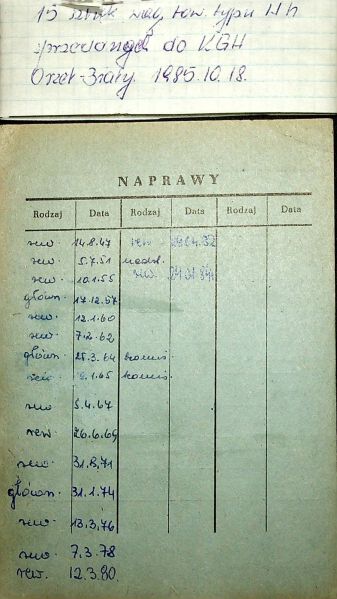 15 sztuk wag. tow. typu Hh
sprzedanych do KGH
Orzeł-Biały 1985.10.18.
NAPRAWY
Rodzaj Data Rodzaj Data Rodzaj Data
rew. 14.8.47 rew 24.04.82
rew. 5.7.51 nadzw.
rew. 10.1.55 rew. 24.01.84
główn. 17.12.57
rew. 12.1.60
rew. 7.2.62
główn. 25.3.64
rew. 9.1.65
rew 5.4.67
rew. 26.6.69
rew. 31.8.71
główn. 31.1.74
rew. 13.3.76
rew. 7.3.78
rew. 12.3.80.